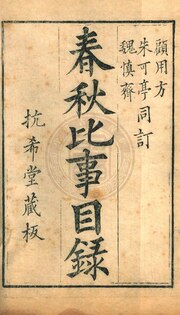 顧用方
朱可亭同訂
魏慎齋
春秋比事目録
抗希堂藏板